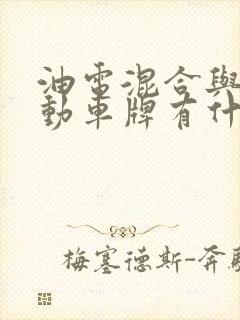 油電混合與
動車牌有什
梅塞德斯-奔馳